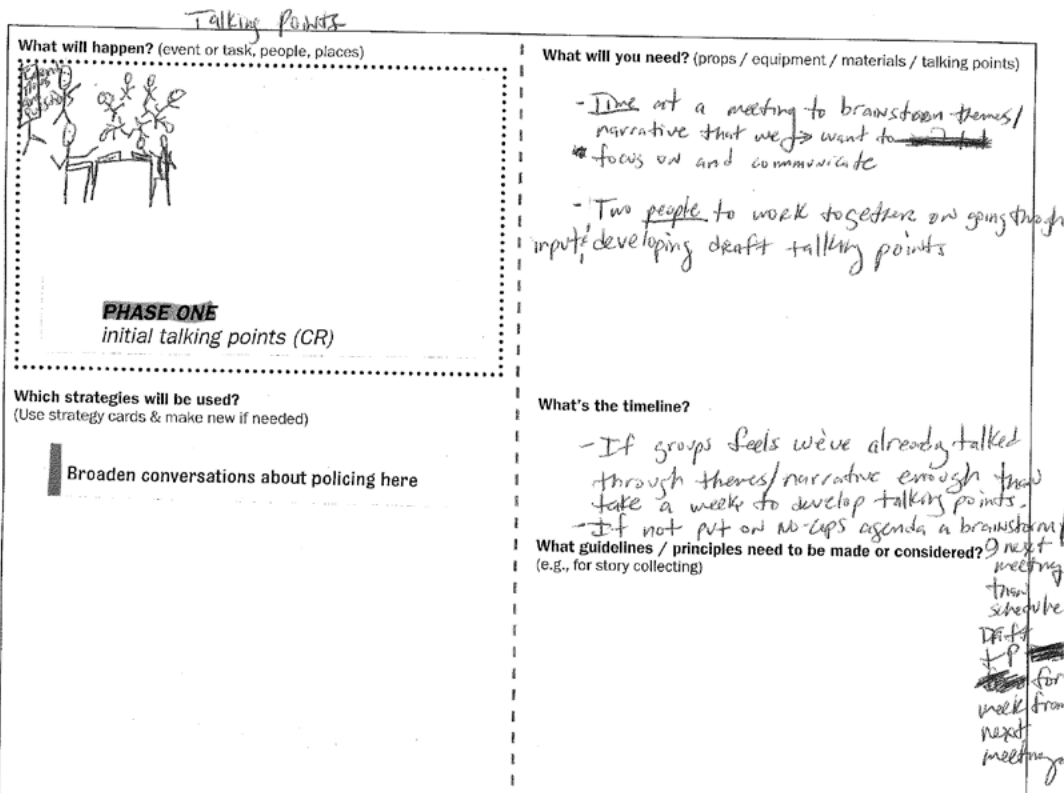 Talking Points
What will happen? (event or task, people, places)
PHASE ONE
initial talking points (CR)
Which strategies will be used?
(Use strategy cards & make new if needed)
Broaden conversations about policing here
What will you need? (props / equipment / materials / talking points)
- Time at a meeting to brainstorm themes/
narrative that we want to
focus on and communicate
- Two people to work together on going through
input & developing draft talking points
What's the timeline?
- If groups feels we've already talked
through themes/narrative enough than
take a week to develop talking points.
- If not put on No-Cops agenda a brainstorm
What guidelines / principles need to be made or considered?
(e.g., for story collecting)
@ next
meeting
than
schedule
Draft
TP
for
week from
next
meeting.